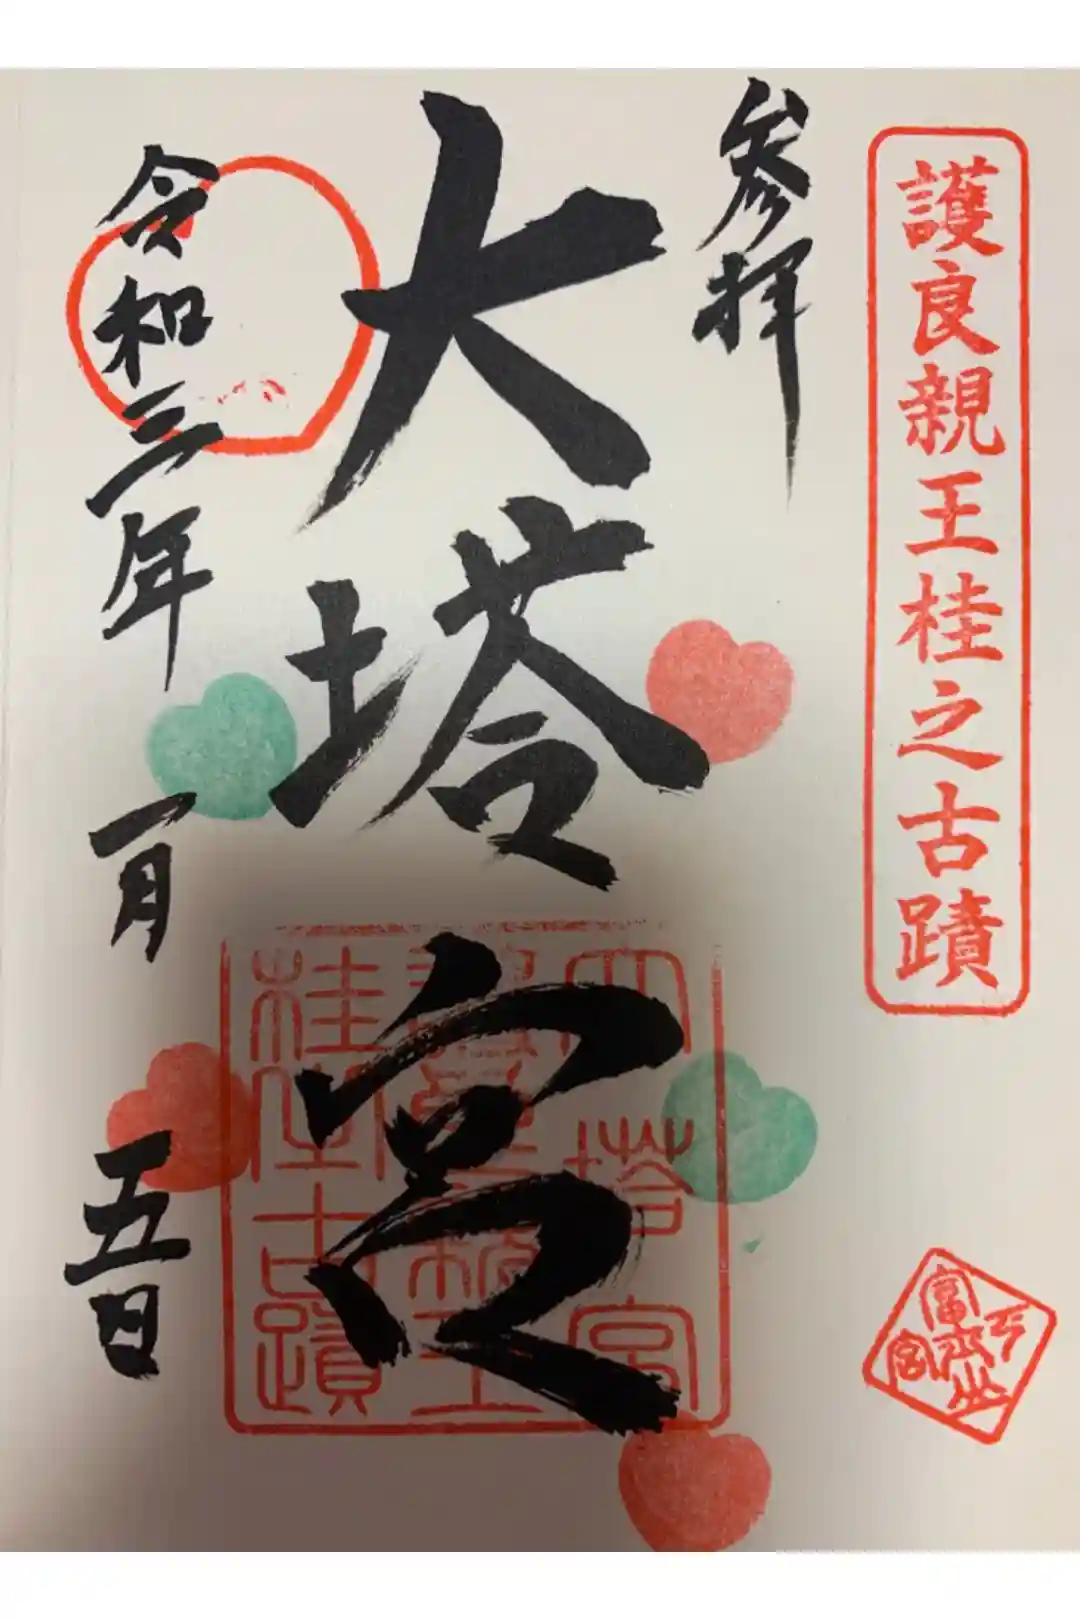 護良親王桂之古蹟
参拝
大塔宮
令和三年 一月 五日
大塔宮
護良親王
桂之古蹟